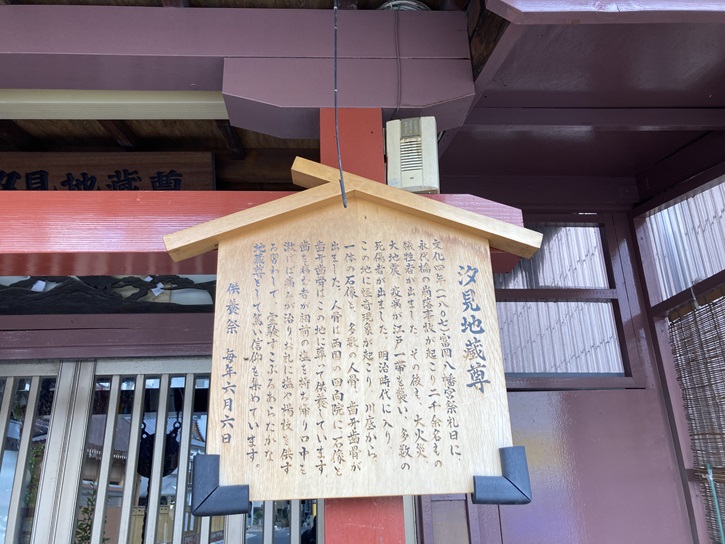 汐見地蔵尊
汐見地蔵尊
文化四年(一八〇七)富岡八幡宮祭礼日に、
永代橋の崩落事故が起こり二千余名もの
犠牲者が出ました。その後も、大火災
大地震、疫病が江戸一帯を襲い、多数の
死傷者が出ました。明治時代に入り、
この地に怪奇現象が起こり、川底から
一体の石像と、多数の人骨、歯牙歯骨が
出ました。人骨は両国の回向院に、石像と
歯牙歯骨はこの地に尊って供養しています。
歯を病む者が祠前の塩を持ち帰り口中を
漱げば痛みが治りお礼に塩や楊枝を供す
ならわしで、霊験すこぶるあらたかな
地蔵尊として篤い信仰を集めています。
供養祭 毎年六月六日